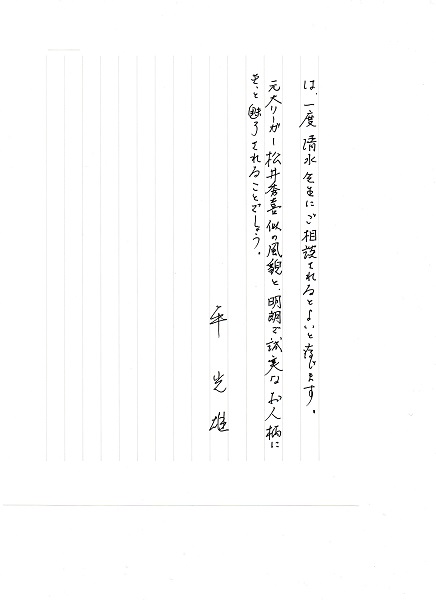 は、一度清水先生にご相談されるとよいと存じます。
元大リーガー松井秀喜似の風貌と、明朗で誠実なお人柄に
きっと魅了されることでしょう。
平光雄